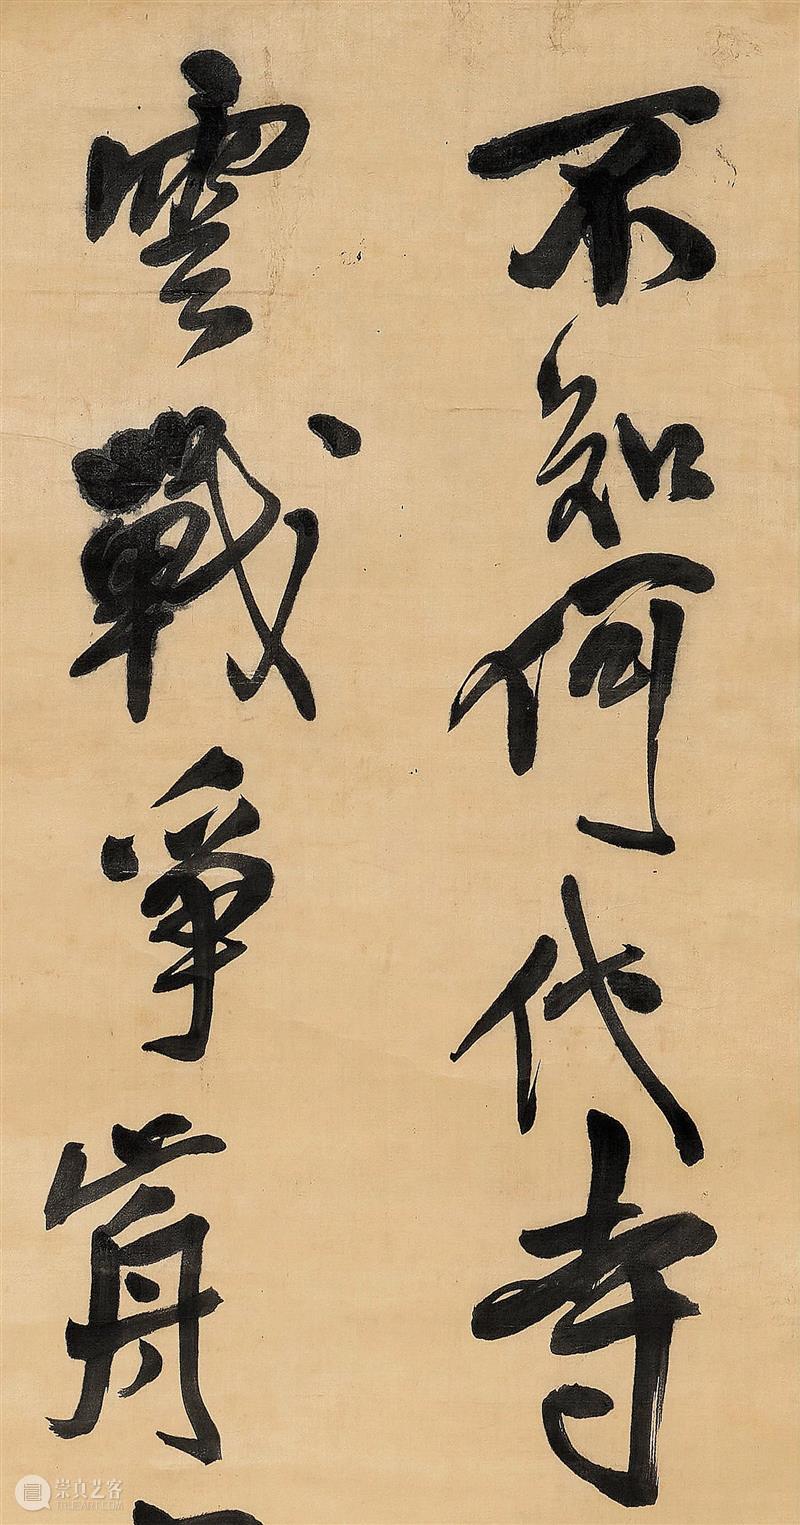 不知何代寺
雲戰爭歬
崇真艺客
TRUEART.COM